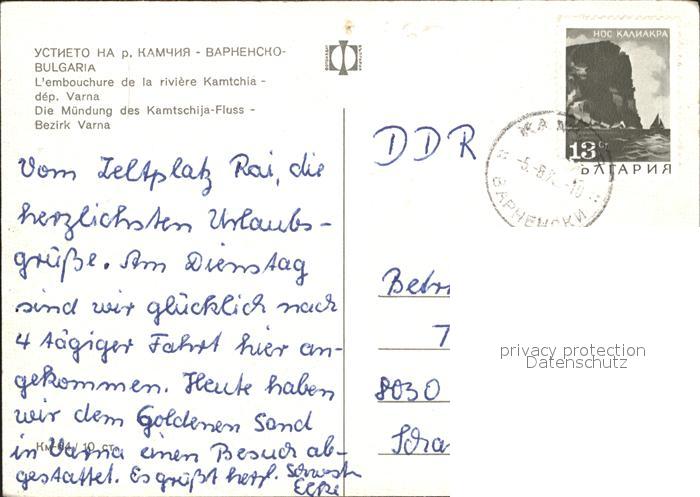 УСТИЕТО НА р. КАМЧИЯ - ВАРНЕНСКО-
BULGARIA
L'embouchure de la rivière Kamtchia -
dép. Varna
Die Mündung des Kamtschija-Fluss -
Bezirk Varna
НОС КАЛИАКРА
13 Ст
БЪЛГАРИЯ
ВАРНЕНСКИ
DDR
Vom Zeltplatz Rai, die
herzlichsten Urlaubs-
grüße. Am Dienstag
sind wir glücklich nach
4 tägiger Fahrt hier an-
gekommen. Heute haben
wir dem Goldenen Sand
in Varna einen Besuch ab-
gestattet. Es grüßt herzl.
Betri
7
8030
privacy protection
Datenschutz